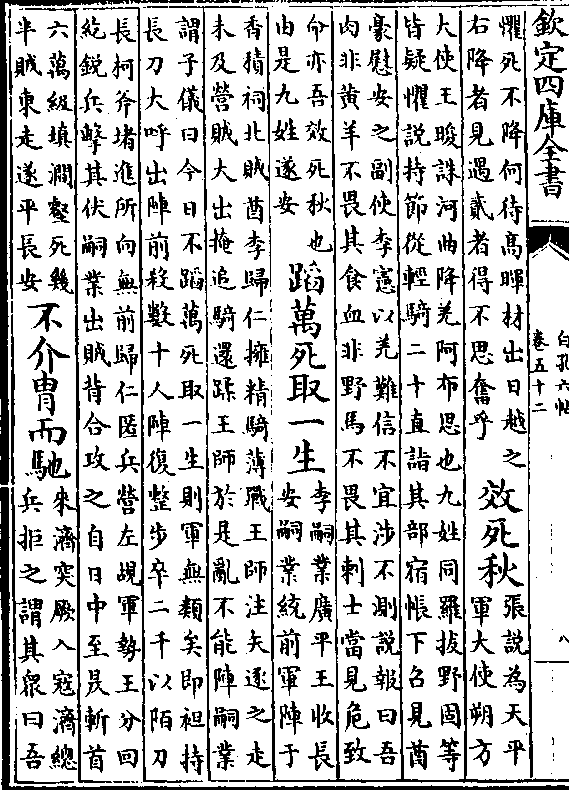 欽定四庫全書
白孔六帖
卷五十二
八
懼死不降何待高暉材出日越之
右降者見遇貳者得不思奮乎
效死秋
張說為天平
軍大使朔方
大使王晙誅河曲降羌阿布思也九姓同羅拔野固等
皆疑懼說持節從輕騎二十直詣其部宿帳下召見酋
豪慰安之副使李憲以羌難信不宜涉不測說報曰吾
肉非黄羊不畏其食血非野馬不畏其刺士當見危致
命亦吾效死秋也
由是九姓遂安
蹈萬死取一生
李嗣業廣平王收長
安嗣業統前軍陣于
香積祠北賊酋李歸仁擁精騎薄戰王師注矢逐之走
未及營賊大出掩追騎還蹂王師於是亂不能陣嗣業
謂子儀曰今日不蹈萬死取一生則軍無類矣即袒持
長刀大呼出陣前殺數十人陣復整步卒二千以陌刀
長柯斧堵進所向無前歸仁匿兵營左覘軍勢王分回
紇銳兵擊其伏嗣業出賊背合攻之自日中至昃斬首
六萬級填澗壑死幾
半賊東走遂平長安
不介胄而馳
來濟突厥入寇濟總
兵拒之謂其眾曰吾